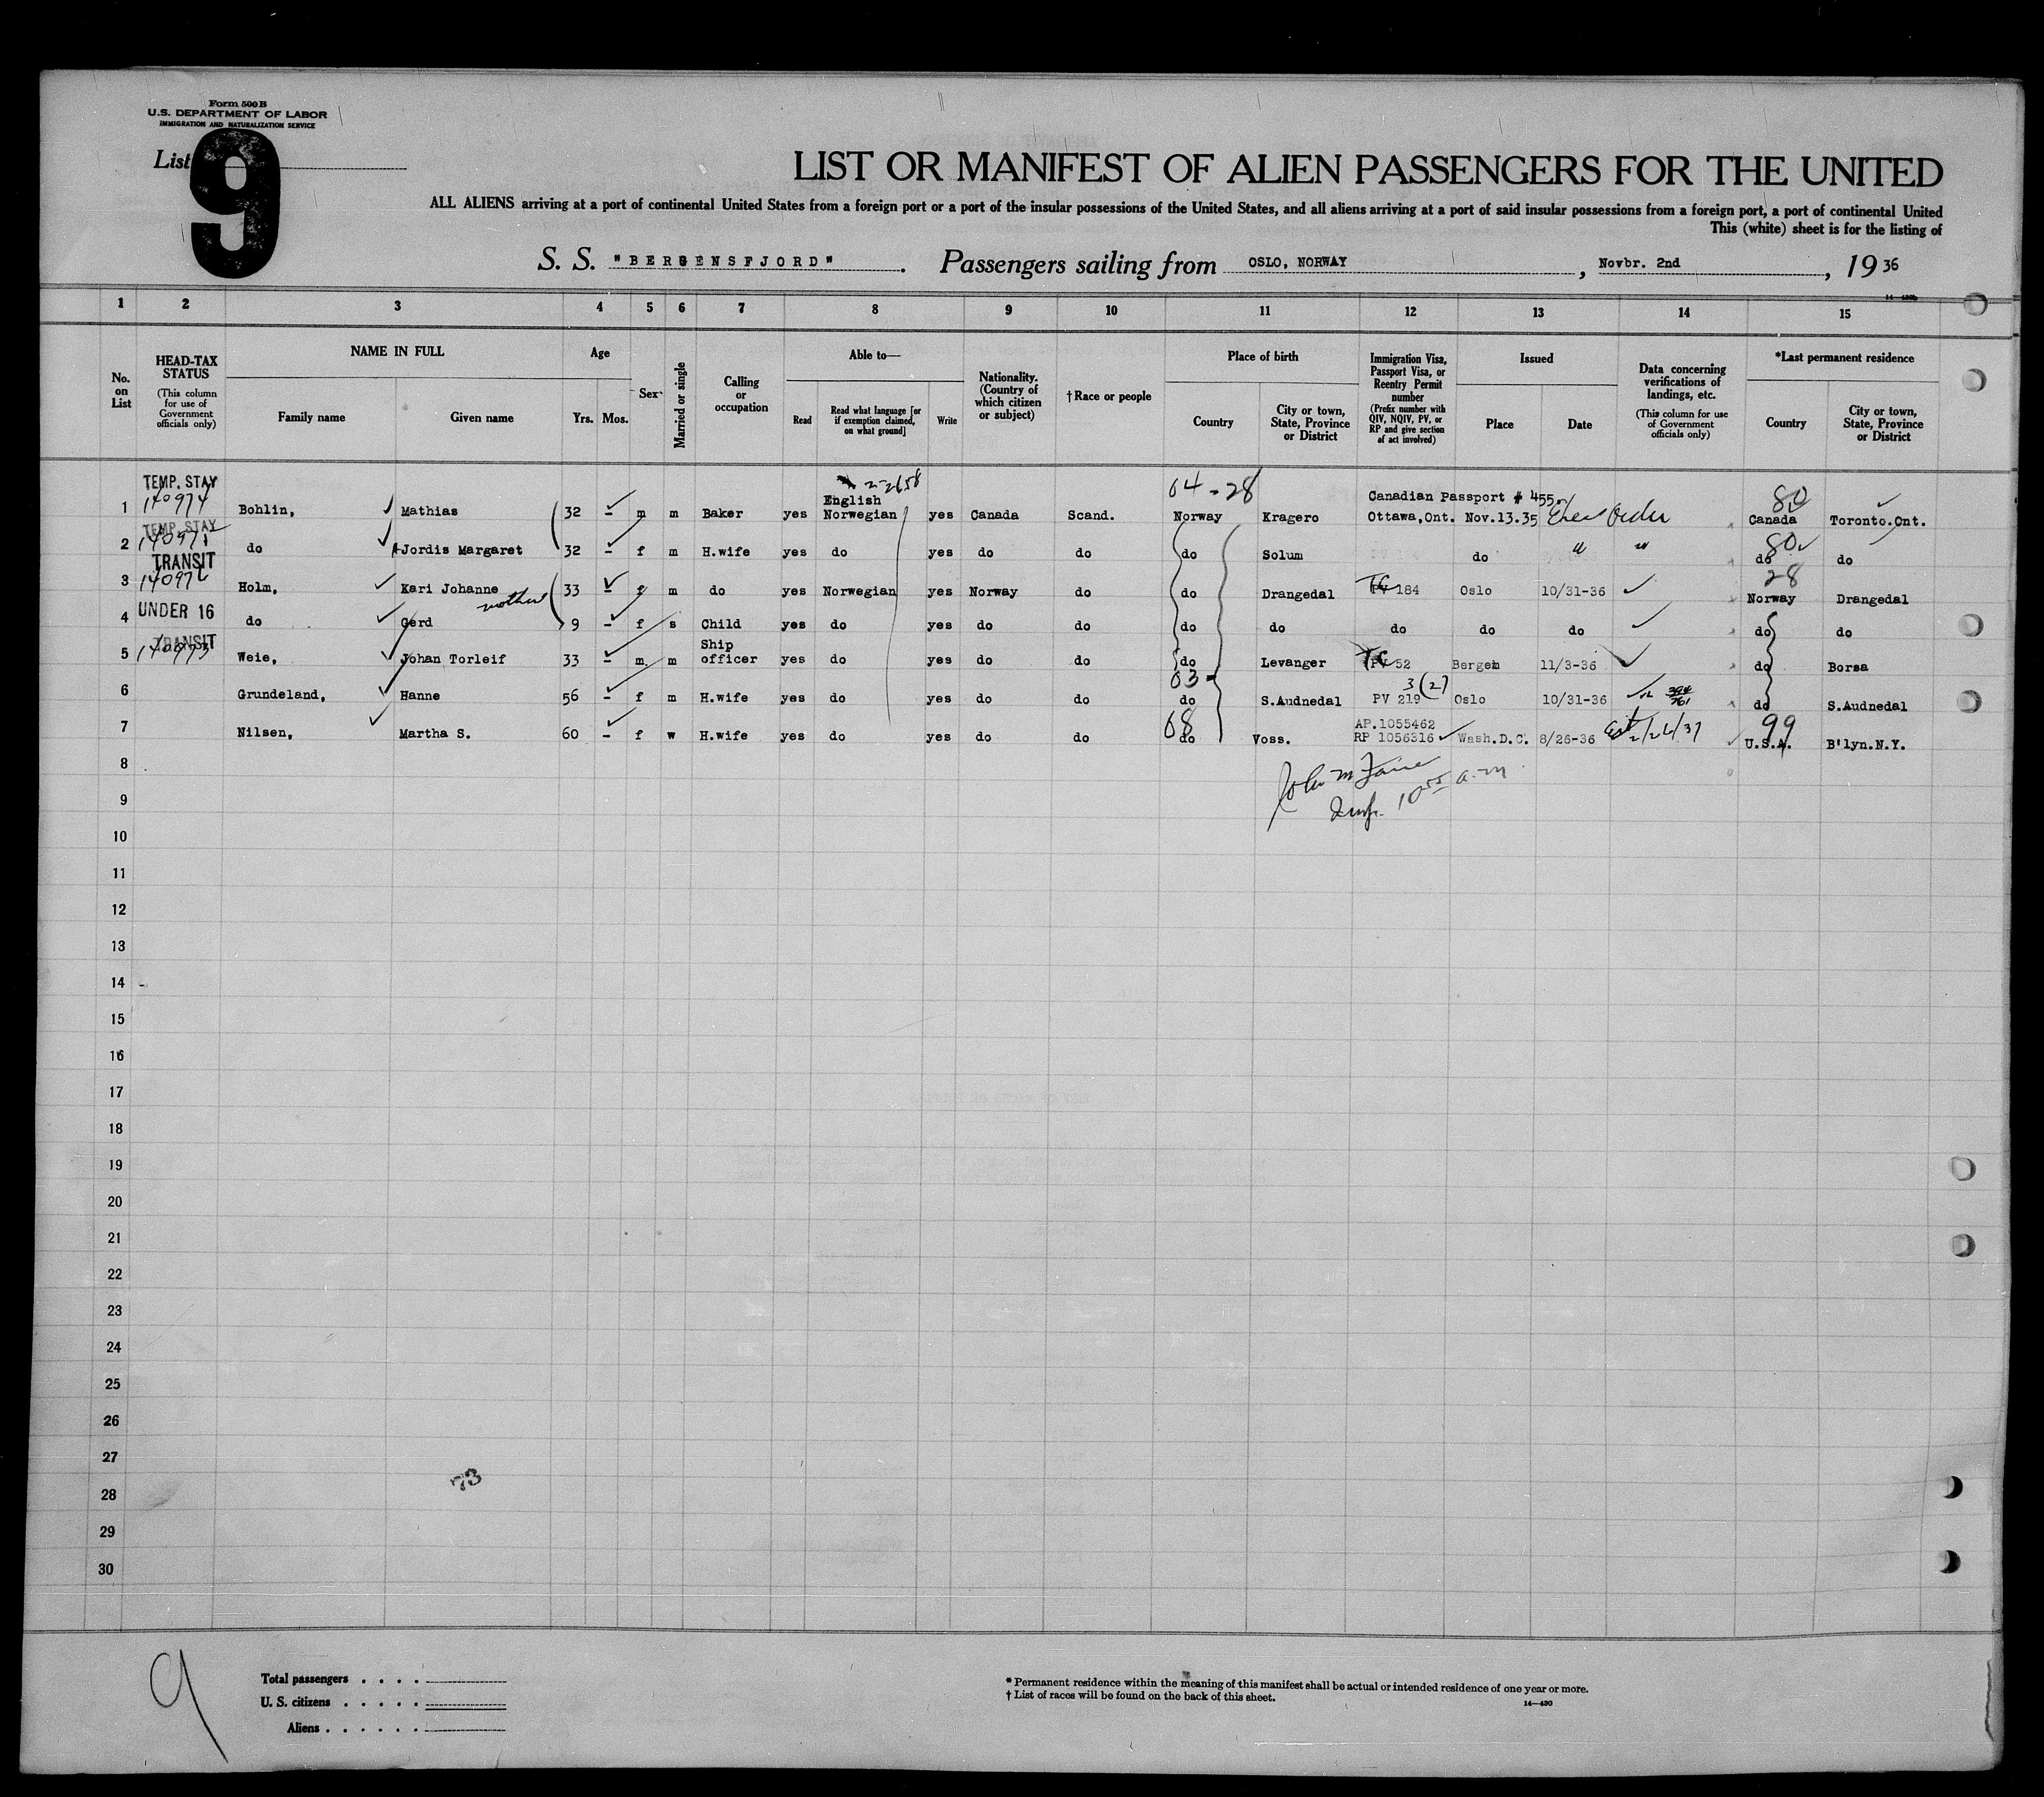 Form 500 B
U.S. DEPARTMENT OF LABOR
IMMIGRATION AND NATURALIZATION SERVICE
List 9
LIST OR MANIFEST OF ALIEN PASSENGERS FOR THE UNITED
ALL ALIENS arriving at a port of continental United States from a foreign port or a port of the insular possessions of the United States, and all aliens arriving at a port of said insular possessions from a foreign port, a port of continental United
This (white) sheet is for the listing of
S. S. "BERGENSFJORD". Passengers sailing from OSLO, NORWAY, Novbr. 2nd, 19 36
1 2 3 4 5 6 7 8 9 10 11 12 13 14 15
No. on List
HEAD-TAX STATUS (This column for use of Government officials only)
NAME IN FULL
Family name
Given name
Age
Yrs. Mos.
Sex
Married or single
Calling or occupation
Able to—
Read
Read what language [or if exemption claimed, on what ground]
Write
Nationality. (Country of which citizen or subject)
† Race or people
Place of birth
Country
City or town, State, Province or District
Immigration Visa, Passport Visa, or Reentry Permit number (Prefix number with QIV, NQIV, PV, or RP and give section of act involved)
Issued
Place
Date
Data concerning verifications of landings, etc. (This column for use of Government officials only)
*Last permanent residence
Country
City or town, State, Province or District
TEMP. STAY 2-2658 04-28 80
1 140974 Bohlin, Mathias 32 - m m Baker yes English Norwegian yes Canada Scand. Norway Kragero Canadian Passport # 455. Ottawa,Ont. Nov.13.35 Canada Toronto.Ont.
TEMP. STAY 80
2 Jordis Margaret do 32 - f m H.wife yes do yes do do do Solum do " " do do
TRANSIT 28
3 Holm, Kari Johanne 33 - f m do yes Norwegian yes Norway do do Drangedal 184 Oslo 10/31-36 Norway Drangedal
UNDER 16 mother
4 do Gerd 9 - f s Child yes do yes do do do do do do do do do
TRANSIT
5 140973 Weie, Johan Torleif 33 - m m Ship officer yes do yes do do do Levanger 52 Bergen 11/3-36 do Borsa
03 3(2)
6 Grundeland, Hanne 56 - f m H.wife yes do yes do do do S.Audnedal PV 219 Oslo 10/31-36 do S.Audnedal
08 99
7 Nilsen, Martha S. 60 - f w H.wife yes do yes do do do Voss. AP.1055462 RP 1056316 Wash.D.C. 8/26-36 2/26/37 U.S.A. B'lyn.N.Y.
8
John M
9
Insp. 10 55 a.m
10
11
12
13
14
15
16
17
18
19
20
21
22
23
24
25
26
27
73
28
29
30
9
Total passengers . . . .
U. S. citizens . . . . .
Aliens . . . . . .
* Permanent residence within the meaning of this manifest shall be actual or intended residence of one year or more.
† List of races will be found on the back of this sheet.
14—430